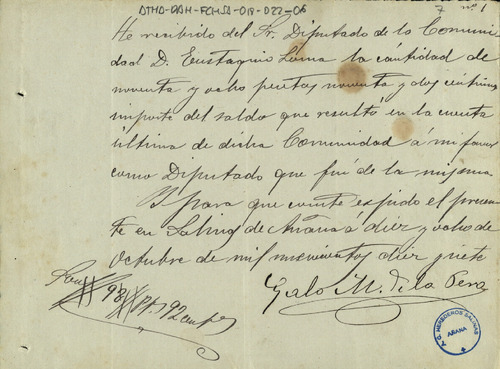 ATHA-DAH-FCHSA-019-022-06
7 nº 1
He recibido del Sr. Diputado de la Comuni
dad D. Eustaquio Loma la cantidad de
noventa y ocho pesetas noventa y dos céntimos
importe del saldo que resultó en la cuenta
última de dicha Comunidad á mi favor
como Diputado que fuí de la misma
Y para que conste expido el presen
te en Salinas de Añana á diez y ocho de
octubre de mil novecientos diez y siete
Son 98 pts 92 cents
Galo M. de la Pera
C. HEREDEROS SALINAS
AÑANA